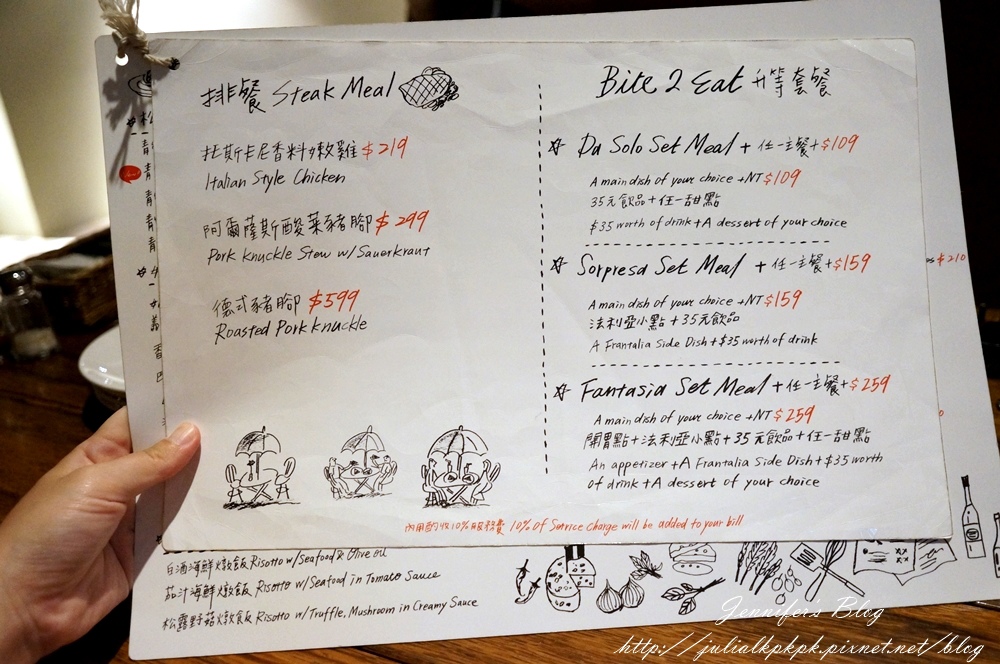 排餐 Steak Meal
托斯卡尼香料嫩雞 $219
Italian Style Chicken
阿爾薩斯酸菜豬腳 $299
Pork Knuckle Stew w/ Sauerkraut
德式豬腳 $599
Roasted Pork Knuckle
Bite 2 Eat 升等套餐
Da Solo Set Meal + 任一主餐+$109
A main dish of your choice +NT$109
35元飲品+任一甜點
$35 worth of drink+A dessert of your choice
Sorpresa Set Meal + 任一主餐+$159
A main dish of your choice +NT$159
法利亞小點+35元飲品
A Frantalia Side Dish+$35 worth of drink
Fantasia Set Meal +任一主餐+$259
A main dish of your choice +NT$259
開胃點+法利亞小點+35元飲品+任一甜點
An appetizer +A Frantalia Side Dish+$35 worth
of drink +A dessert of your choice
內用酌收10%服務費 10% of Service charge will be added to your bill
$210
白酒海鮮燉飯 Risotto w/Seafood & Olive oil
茄汁海鮮燉飯 Risotto w/Seafood in Tomato Sauce
松露野菇燉飯 Risotto w/Truffle, Mushroom in Creamy Sauce
Jennifer's Blog
http://julialkpkpk.pixnet.net/blog